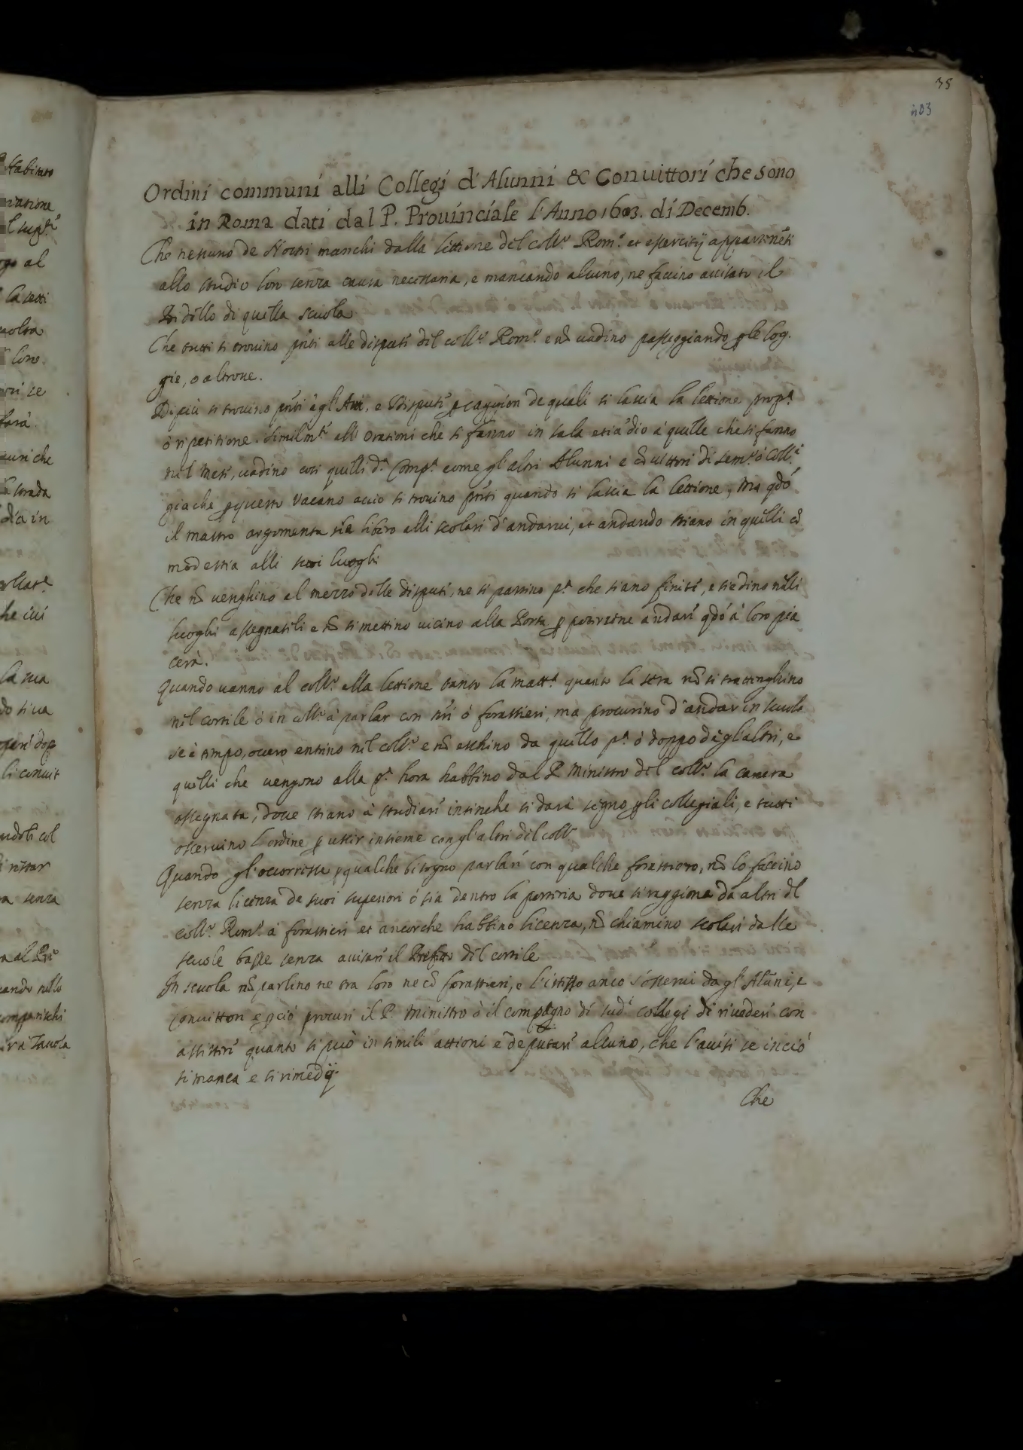 35
403
Ordini communi alli Collegi d'Alunni & Convittori che sono
in Roma dati dal P. Provinciale l'Anno 1603. di Decemb.
Che nessuno de Nostri manchi dalla lettione del coll.º Rom.º et essercitij appartenēti
allo studio loro senza causa necessaria, e mancando alcuno, ne faccino avisato il
Bidello di quella scuola
Che tutti si trovino pñti alle disputé del coll.º Rom.º e nō vadino passeggiando p le log-
gie, o altrove.
Di più si trovino pñti à gl'Atti, e Disputé p caggion de quali si lascia la lettione prop.ª
ò ripetitione. Similmᵗᵉ all' Orationi che si fanno in sala etiādio à quelle che si fanno
nel mesi, vadino così quelli dᵃ Comp.ª come gl'altri Alunni e cōvittori di Sem.º ò Coll.º
gia che p questo vacano acciò si trovino pñti quando si lascia la lettione, Ma qdō
il mastro argomenta sia libero alli scolari d'andarvi, et andando stiano in quelli cō
modestia alli suoi luoghi
Che nō venghino al mezzo delle disputé, ne si partino pª che siano finité, e siedino nelli
luoghi assegnatili e nō si mettino vicino alla Porta p potersene andaré qdō à loro pia
cerà.
Quando vanno al coll.º alla lettione tanto la matt.ª quanto la sera nō si trattenghino
nel cortile ò in coll.º à parlar con nři ò forastieri, ma procurino d'andar in scuola
se è tempo, overo entrino nel coll.º e nō eschino da quello pª ò doppo degl'altri, e
quelli che vengono alla pª hora habbino dal P. Ministro del coll.º la camera
assegnata, dove stiano à studiaré insinche si darà segno p gli collegiali, e tutti
osservino l'ordine p uscir insieme con gl'altri del coll.º
Quando gl'occorressi p qualche bisogno parlaré con qualche forastiero, nō lo faccino
senza licenza de suoi superiori ò sia dentro la porteria dove si raggiona da altri del
coll.º Rom.º à forastieri et ancorche habbino licenza, nō chiamino scolari dalle
scuole basse senza avisaré il Prefetto del cortile
In scuola nō parlino ne tra loro ne cō forastieri, e l'istesso anco s'osservi da gl'Alūni, e
convittori e pciò procuri il P. Ministro ò il compagno di sud.ⁱ collegi di rivederé con
assisteré quanto si può in simili attioni e deputaré alcuno, che l'avisi se in ciò
si manca e si rimedij.
Che